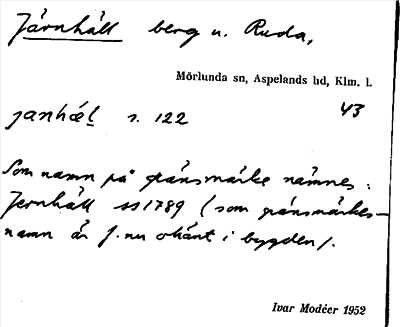 Järnhäll berg u. Ruda,
Mörlunda sn, Aspelands hd, Klm. l.
43
janhæl s. 122
Som namn på gränsmärke nämnes:
Jernhäll ss 1789 (som gränsmärkes-
namn är j. nu okänt i bygden).
Ivar Modéer 1952